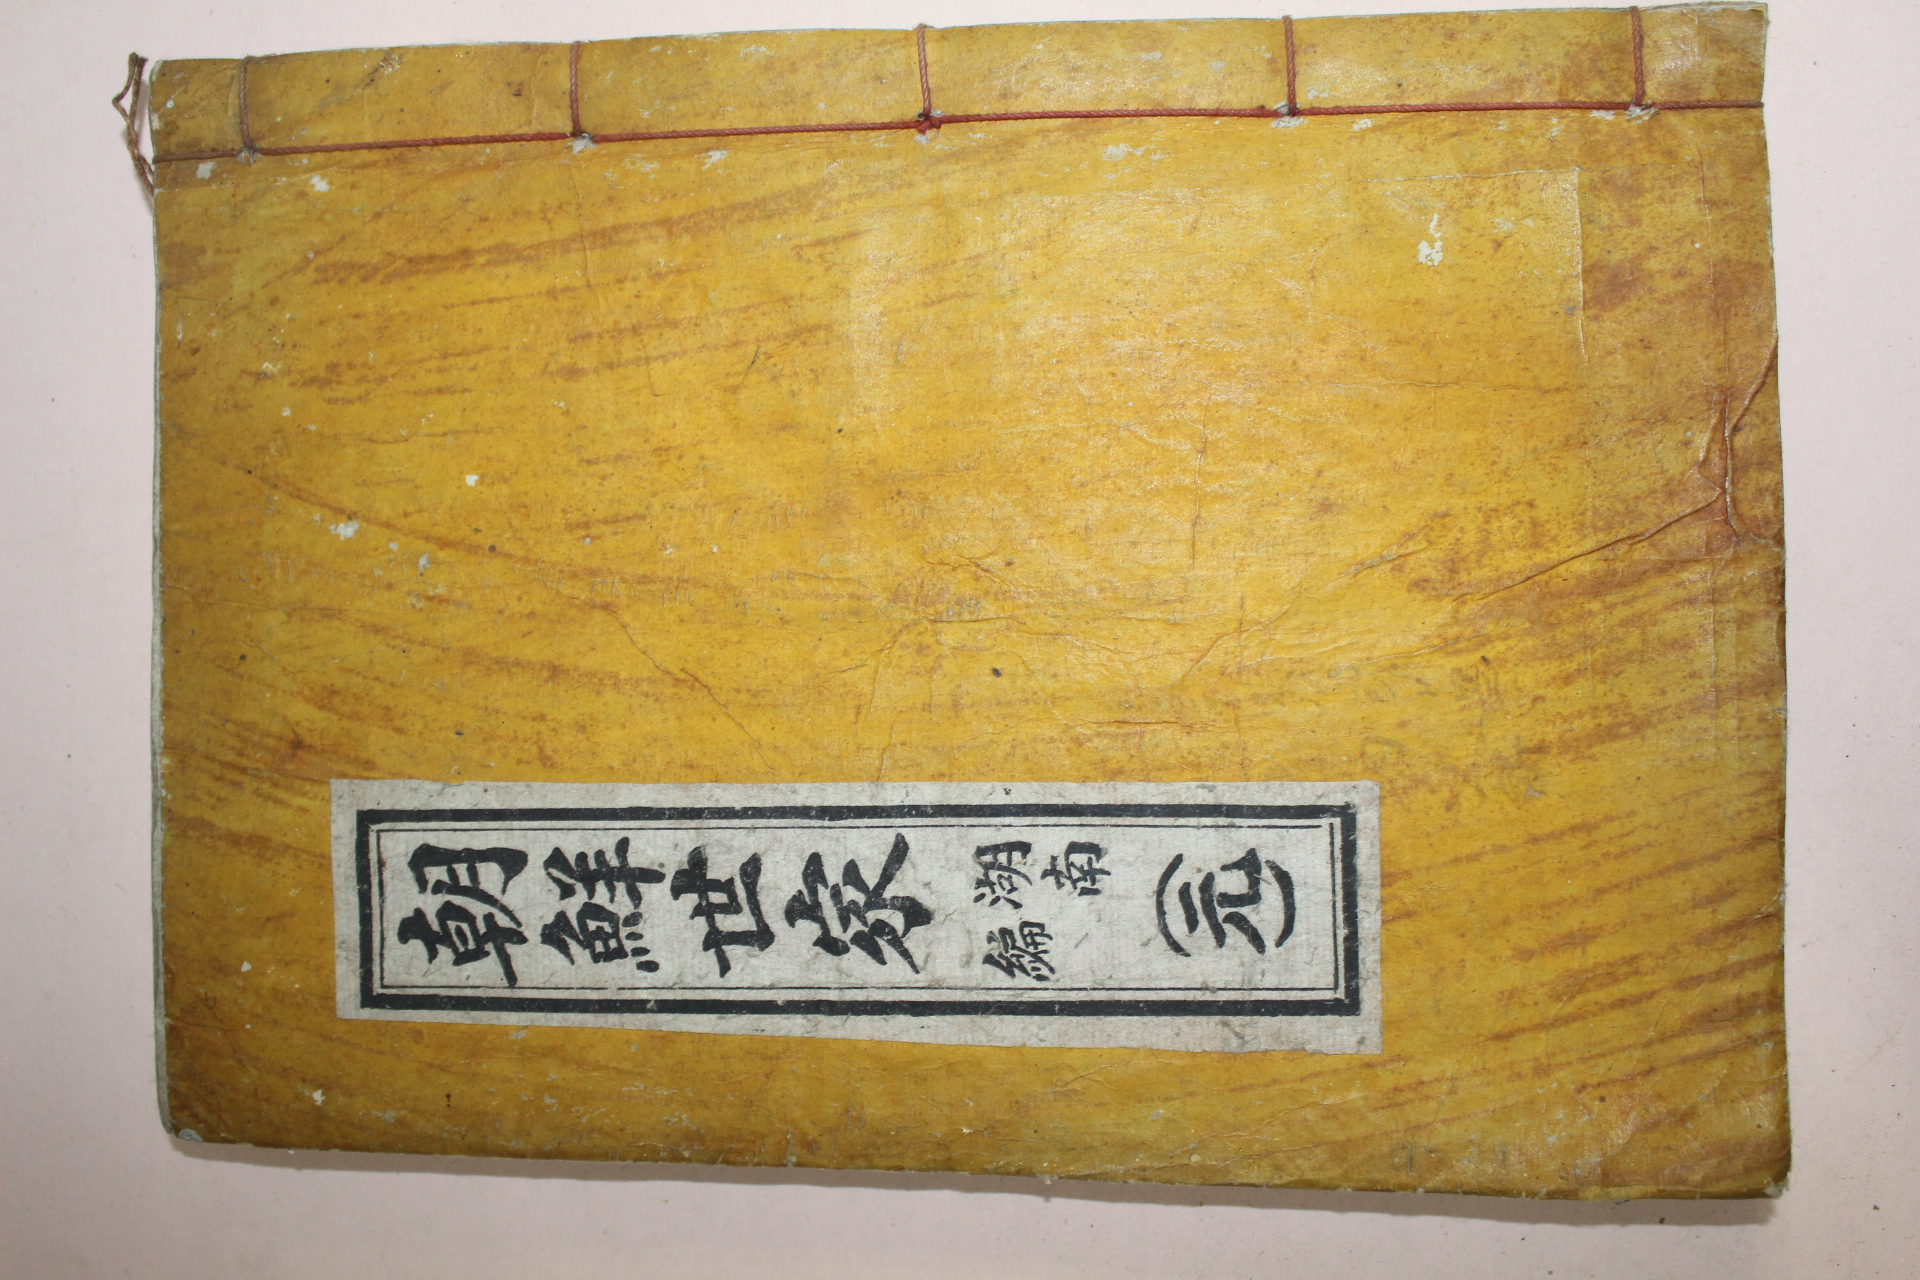 朝鮮世家 湖南編 (元)